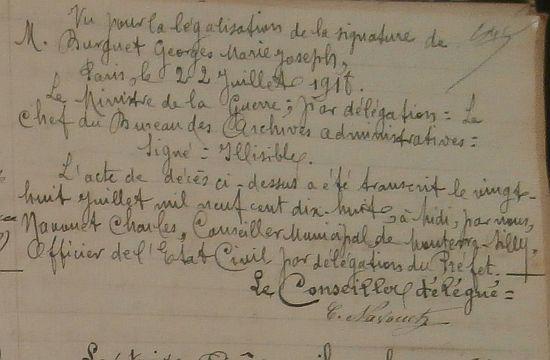 Vu pour la légalisation de la signature de
M. Burguet Georges Marie Joseph,
Paris, le 22 Juillet 1918.
Le Ministre de la Guerre; par délégation = Le
Chef du Bureau des Archives administratives =
Signé = Illisible.
L'acte de décès ci-dessus a été transcrit le vingt-
huit Juillet mil neuf cent dix-huit, à midi, par nous,
Charles, Conseiller Municipal de
Officier de l'Etat Civil par délégation du Préfet.
Le Conseiller délégué =